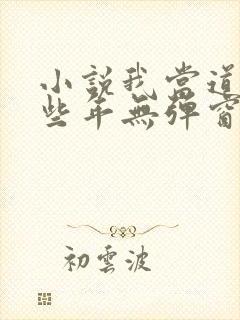 小說我當道
些年無彈窗
初雲波